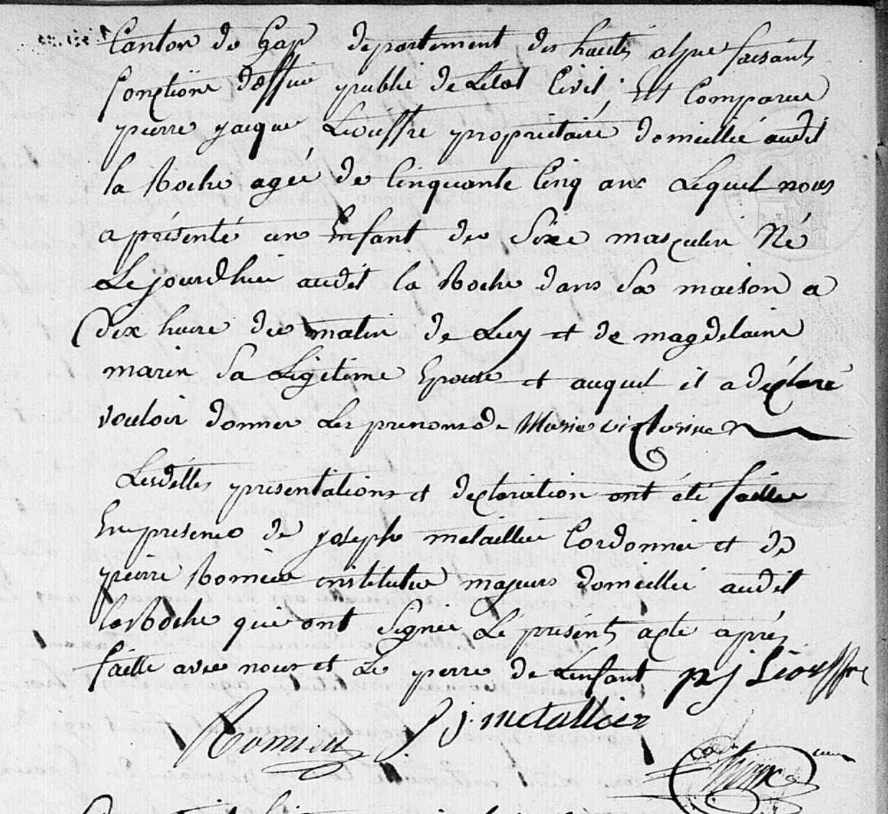 Canton de Gap département des hautes alpes faisant
fonctions d'officier public de L'état Civil. Est Comparu
pierre jacque Lioussre propriétaire domicillié audit
la Roche agé de Cinquante Cinq ans Lequel nous
a présenté un Enfant du Sexe masculin Né
Lejourdhui audit la Roche dans Sa maison a
Dix heure du matin de Luy et de magdelaine
marin Sa Légitime Epouse et auquel il a déclaré
vouloir donner Les prenoms de Marie
Lesdittes présentations et déclaration ont été faittes
En présence de joseph métaillier Cordonnier et de
pierre Romieu instituteur majeurs domicilié audit
la Roche qui ont Signé Le présent acte après
faitte avec nous et Le perre de L'enfant pj Lioussre
Romieu j. metallier